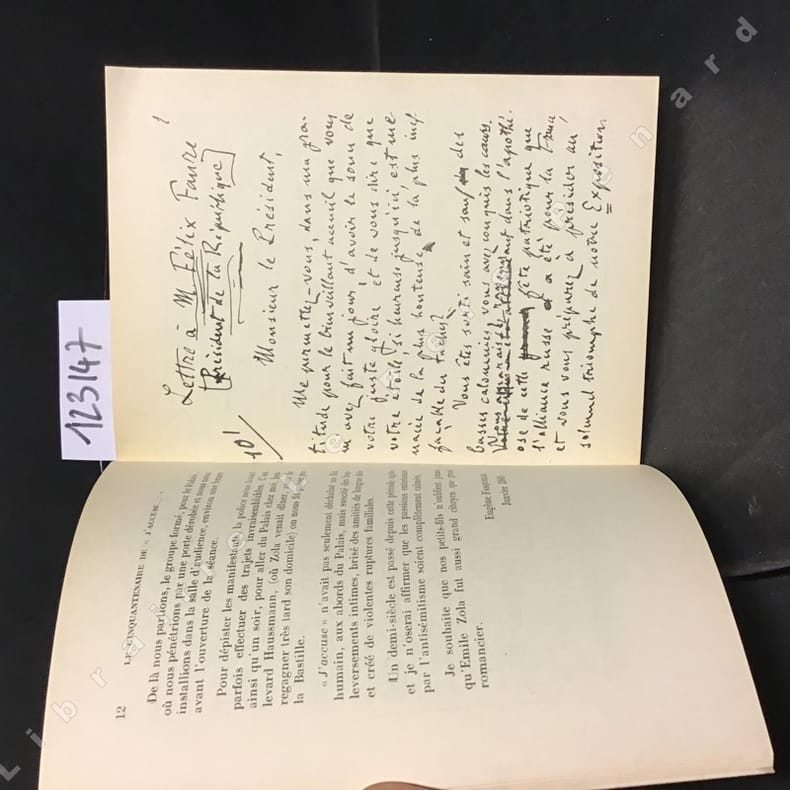 12 LE CINQUANTENAIRE DE « J'ACCUSE... »
De là nous partions, le groupe formé, pour le Palais,
où nous pénétrions par une porte dérobée et nous nous
installions dans la salle d'audience, environ une heure
avant l'ouverture de la séance.
Pour dépister les manifestants, la police nous
parfois effectuer des trajets invraisemblables.
ainsi qu'un soir, pour aller du Palais chez moi,
levard Haussmann, (où Zola venait dîner,
regagner très tard son domicile) on nous fit
la Bastille.
« J'accuse » n'avait pas seulement déchaîné
humain, aux abords du Palais, mais suscité des
leversements intimes, brisé des amitiés de longue
et créé de violentes ruptures familiales.
Un demi-siècle est passé depuis cette période
et je n'oserai affirmer que les passions
par l'antisémitisme soient complètement calmées.
Je souhaite que nos petits-fils n'oublient pas
qu'Emile Zola fut aussi grand citoyen que
romancier.
Eugène
Janvier
123147
1
Lettre à M. Félix Faure
[Président de la République]
10/
Monsieur le Président,
Me permettez-vous, dans ma gra-
titude pour le bienveillant accueil que vous
m'avez fait un jour, d'avoir le souci de
votre juste gloire et de vous dire que
votre étoile, si heureuse jusqu'ici, est me-
nacée de la plus honteuse, de la plus inef-
façable des taches?
Vous êtes sorti sain et sauf des
basses calomnies, vous avez conquis les cœurs.
Vous apparaissez rayonnant dans l'apothé-
ose de cette fête patriotique que
l'alliance russe a été pour la France
et vous vous préparez à présider au
solennel triomphe de notre Exposition
Librairie Bernard